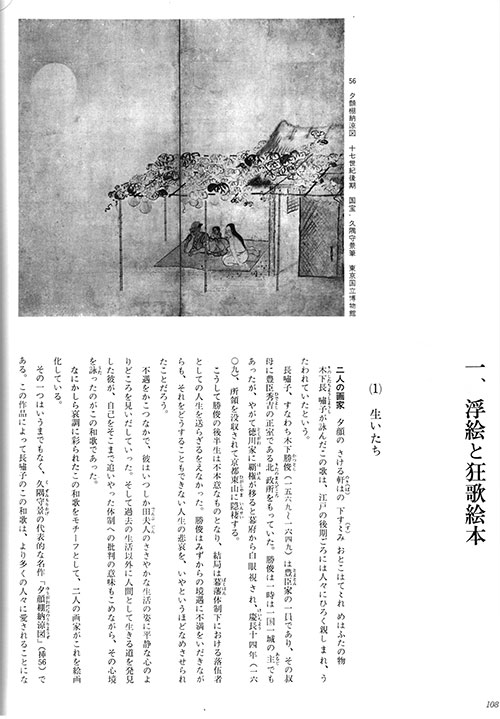 一、浮絵と狂歌絵本
(1) 生いたち
二人の画家 夕顔の さける軒ばの 下すゞみ おとこはてゝれ めはふたの物
木下長嘯子が詠んだこの歌は、江戸の後期ごろには人々にひろく親しまれ、う
たわれていたという。
長嘯子、すなわち木下勝俊（一五六九〜一六四九）は豊臣家の一員であり、その叔
母に豊臣秀吉の正室である北政所をもっていた。勝俊は一時は一国一城の主でも
あったが、やがて徳川家に覇権が移ると幕府から白眼視され、慶長十四年（一六
〇九）、所領を没収されて京都東山に隠棲する。
こうして勝俊の後半生は不本意なものとなり、結局は幕藩体制下における落伍者
としての人生を送らざるをえなかった。勝俊はみずからの境遇に不満をいだきなが
らも、それをどうすることもできない人生の悲哀を、いやというほどなめさせられ
たことだろう。
不遇をかこつなかで、彼はいつしか田夫人のささやかな生活の姿に平静な心のよ
りどころを見いだしていった。そして過去の生活以外に人間として生きる道を発見
した彼が、自己をそこまで追いやった体制への批判の意味もこめながら、その心境
を詠ったのがこの和歌であった。
なにかしら哀調に彩られたこの和歌をモチーフとして、二人の画家がこれを絵画
化している。
その一つはいうまでもなく、久隅守景の代表的な名作「夕顔棚納涼図」（挿56）で
ある。この作品によって長嘯子のこの和歌は、より多くの人々に愛されることにな
56 夕顔棚納涼図 十七世紀後期 国宝 久隅守景筆 東京国立博物館
108